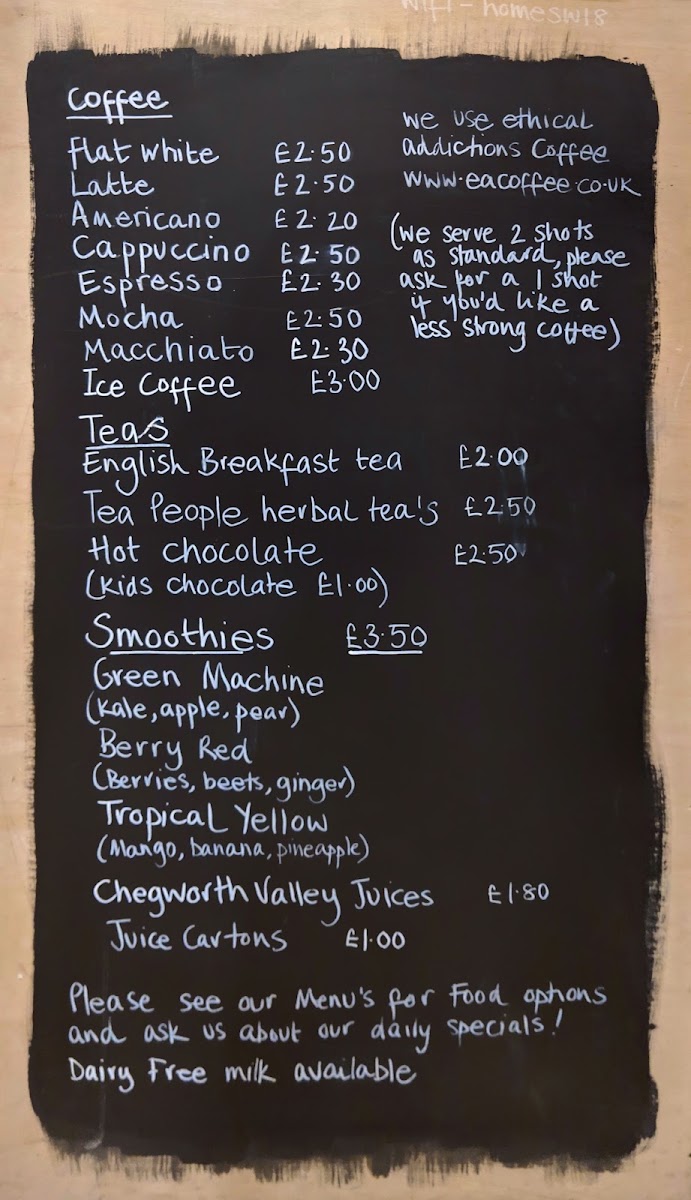 Wifi - homesw18
Coffee
flat white £2.50
Latte £2.50
Americano £2.20
Cappuccino £2.50
Espresso £2.30
Mocha £2.50
Macchiato £2.30
Ice Coffee £3.00
we use ethical
addictions Coffee
www.eacoffee.co.uk
(we serve 2 shots
as standard, please
ask for a 1 shot
if you'd like a
less strong coffee)
Teas
English Breakfast tea £2.00
Tea People herbal tea's £2.50
Hot chocolate £2.50
(Kids chocolate £1.00)
Smoothies £3.50
Green Machine
(Kale, apple, pear)
Berry Red
(Berries, beets, ginger)
Tropical Yellow
(Mango, banana, pineapple)
Chegworth Valley Juices £1.80
Juice Cartons £1.00
Please see our Menu's for Food options
and ask us about our daily specials!
Dairy Free milk available